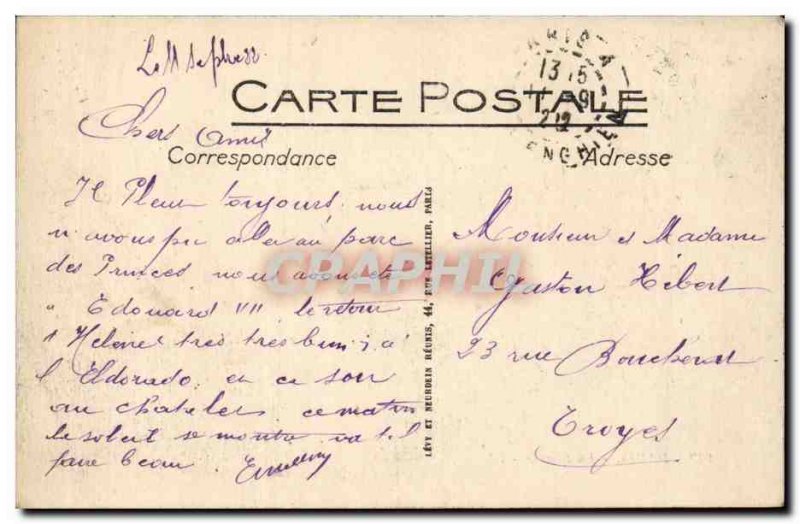 Le 11 Septbre 22
CARTE POSTALE
PARIS
13 15
11 - 9
22
ENGHIEN
Chers Amis
Correspondance
Adresse
Il Pleut toujours nous
n'avons pu aller au parc
des Princes nous avons été
à Edouard VII le retour
d'Hélène très très bien, à
l'Eldorado et ce soir
au chatelet ce matin
le soleil se montre va t il
faire beau
LÉVY ET NEURDEIN RÉUNIS, 44, RUE LETELLIER, PARIS
Monsieur et Madame
Gaston Hébert
23 rue
Troyes
CPAPHIL